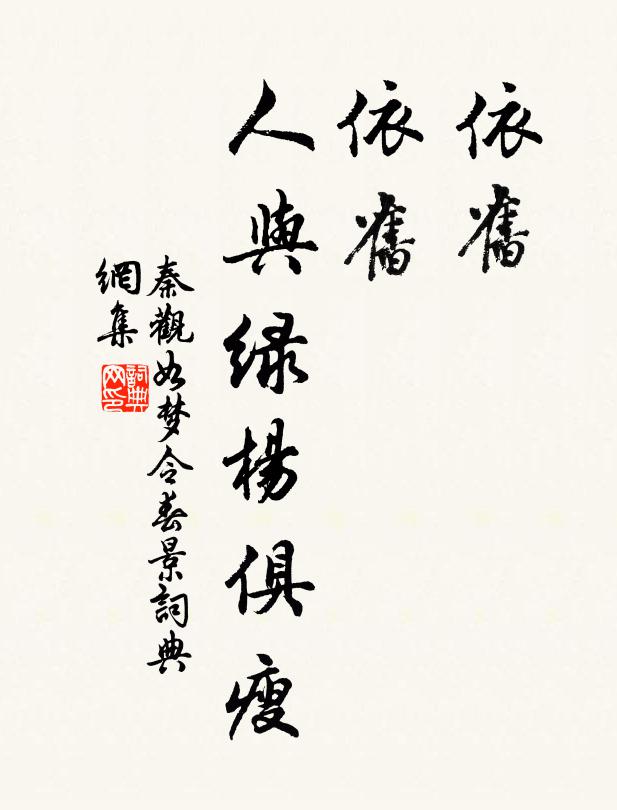 依舊
依舊
人與绿楊俱瘦
秦觀如梦令春景詞典
網集
詞典
网印